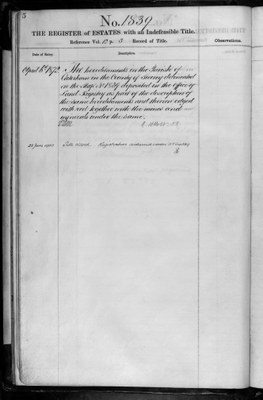 No. 1839
THE REGISTER of ESTATES with an Indefeasible Title.
Reference Vol. p. Record of Title.
Date of Entry. Description. Observations.
April 6th 1872 The hereditaments in the Parish of
Caterham in the County of Surrey delineated
on the Map No. 1839 deposited in the Office of
Land Registry as part of the description of
the same hereditaments and therein edged
with red together with the mines and
minerals under the same.
Title